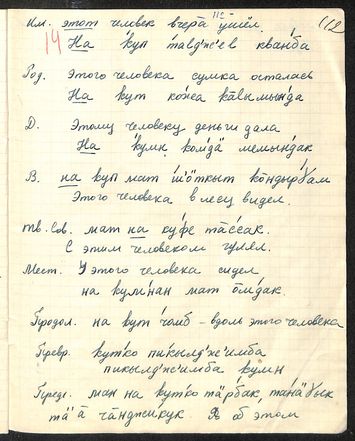 112
Им. этот человек вчера ушёл.
14 На куп тавд'жев кванба
Род. Этого человека сумка осталась
На кут кожа кавымында
Д. Этому человеку деньги дала
На кумн комдä мемындак
В. на куп мат кондыр
Этого человека в лесу видел.
Тв. Сов. мат на куфе тассак.
С этим человеком гулял.
Мест. У этого человека сидел
на кумнан мат о̄мдак
Продол. на кут чомб – вдоль этого человека
Превр. кутко пикылд'жимба
пикылд'жимба кумн
Предл. ман на кутко тäрбак,
Я об этом